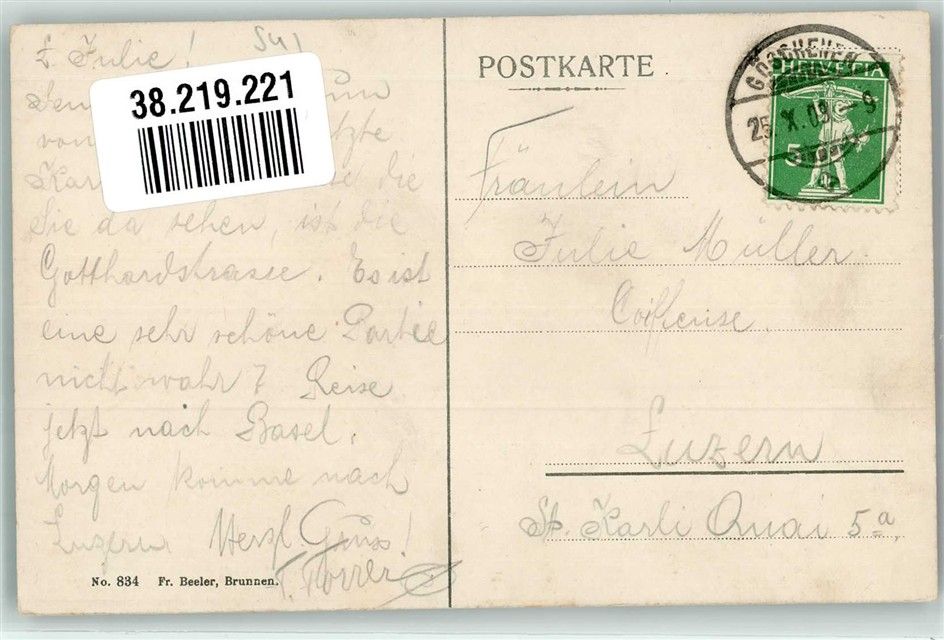 L. Julie! SU1
38.219.221
von
Kar die
Sie da sehen, ist die
Gotthardstrasse. Es ist
eine sehr schöne Partie
nicht wahr? Reise
jetzt nach Basel.
Morgen komme nach
Luzern Herzl Gruss!
T. Forrer
No. 834 Fr. Beeler, Brunnen.
POSTKARTE
GÖSCHENEN
25. X. 09
HELVETIA
5
Fräulein
Julie Müller
Coiffeuse.
Luzern
St. Karli Quai 5a